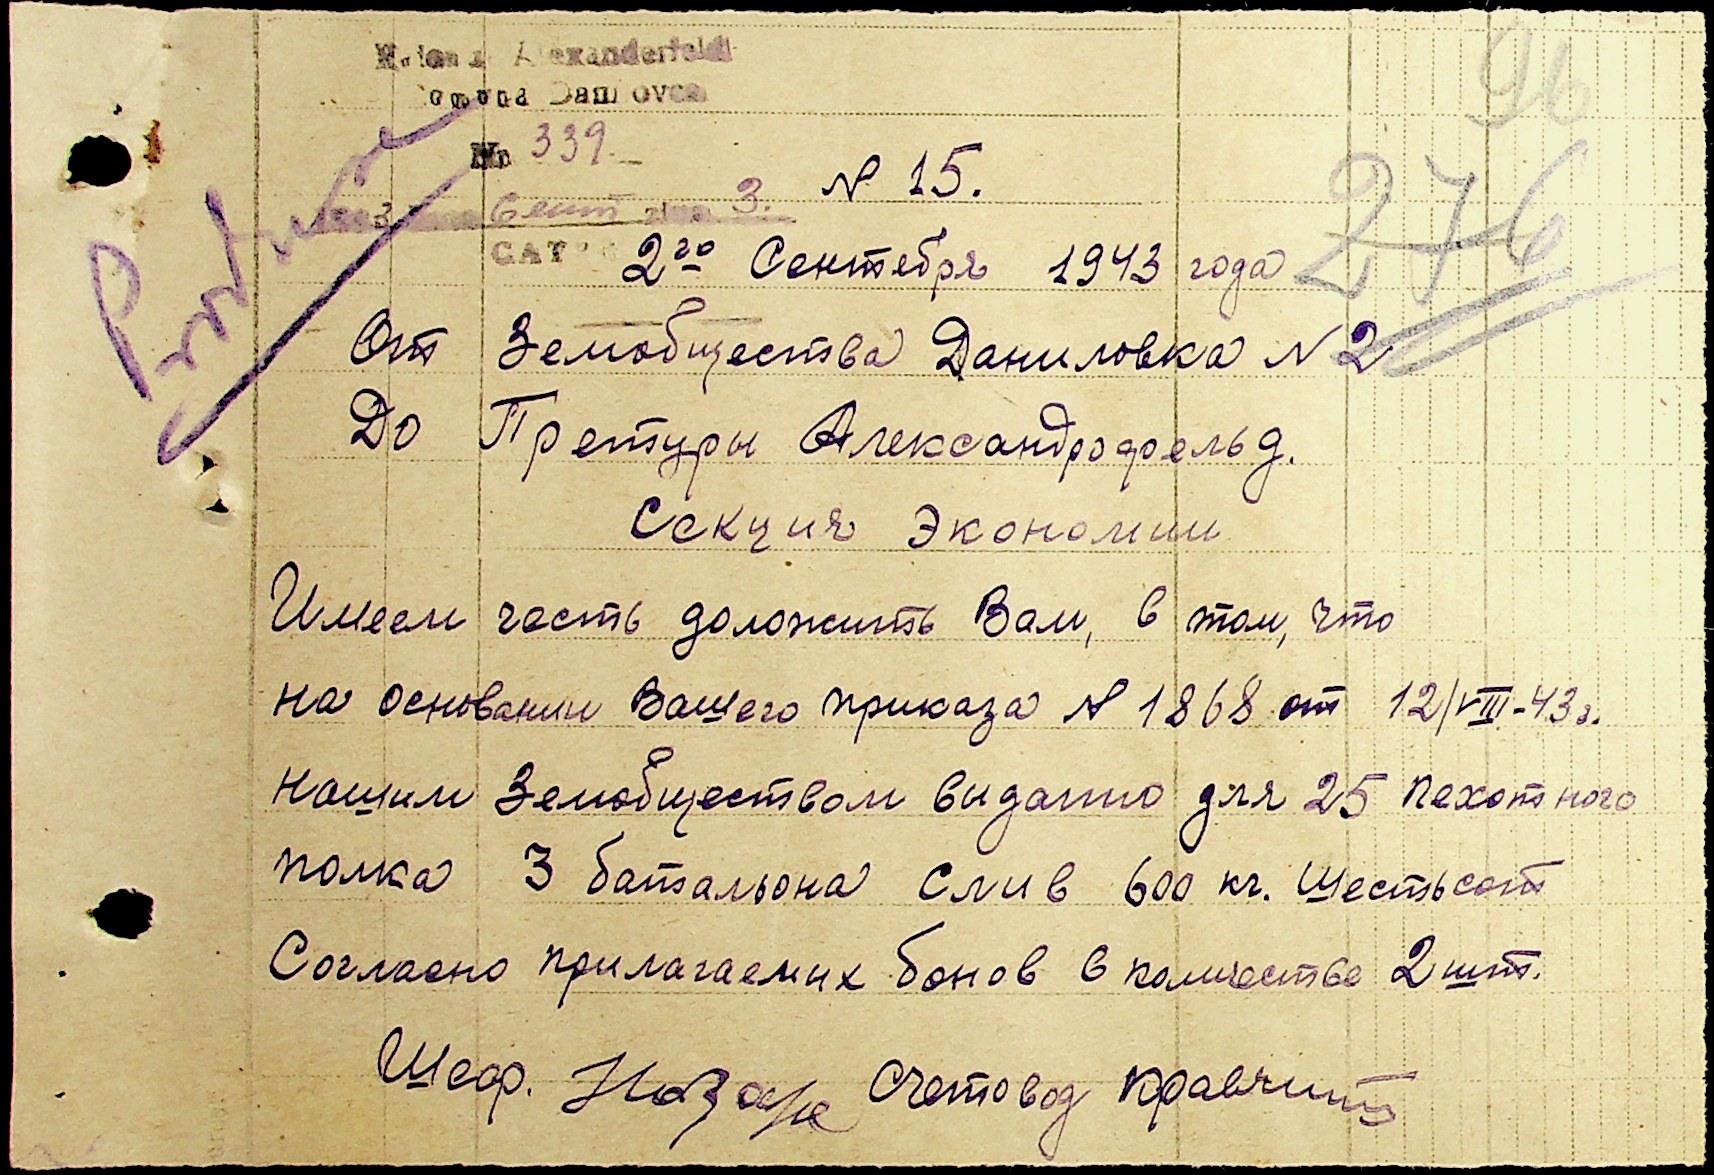 Alexanderfeld
Comuna Danilovca
No 339.
1943 luna Сент ziua 3.
CATRE
96
276
N 15.
2го Сентября 1943 года
От Земобщества Даниловка N 2
До Претуры Александрофельд.
Секция Экономии
Имеем честь доложить Вам, в том, что
на основании Вашего приказа N 1868 от 12/VIII-43г.
нашим Земобществом выданно для 25 пехотного
полка 3 батальона Слив 600 кг. шестьсот
Согласно прилагаемих бонов в количестве 2 шт.
Шеф. Счетовод